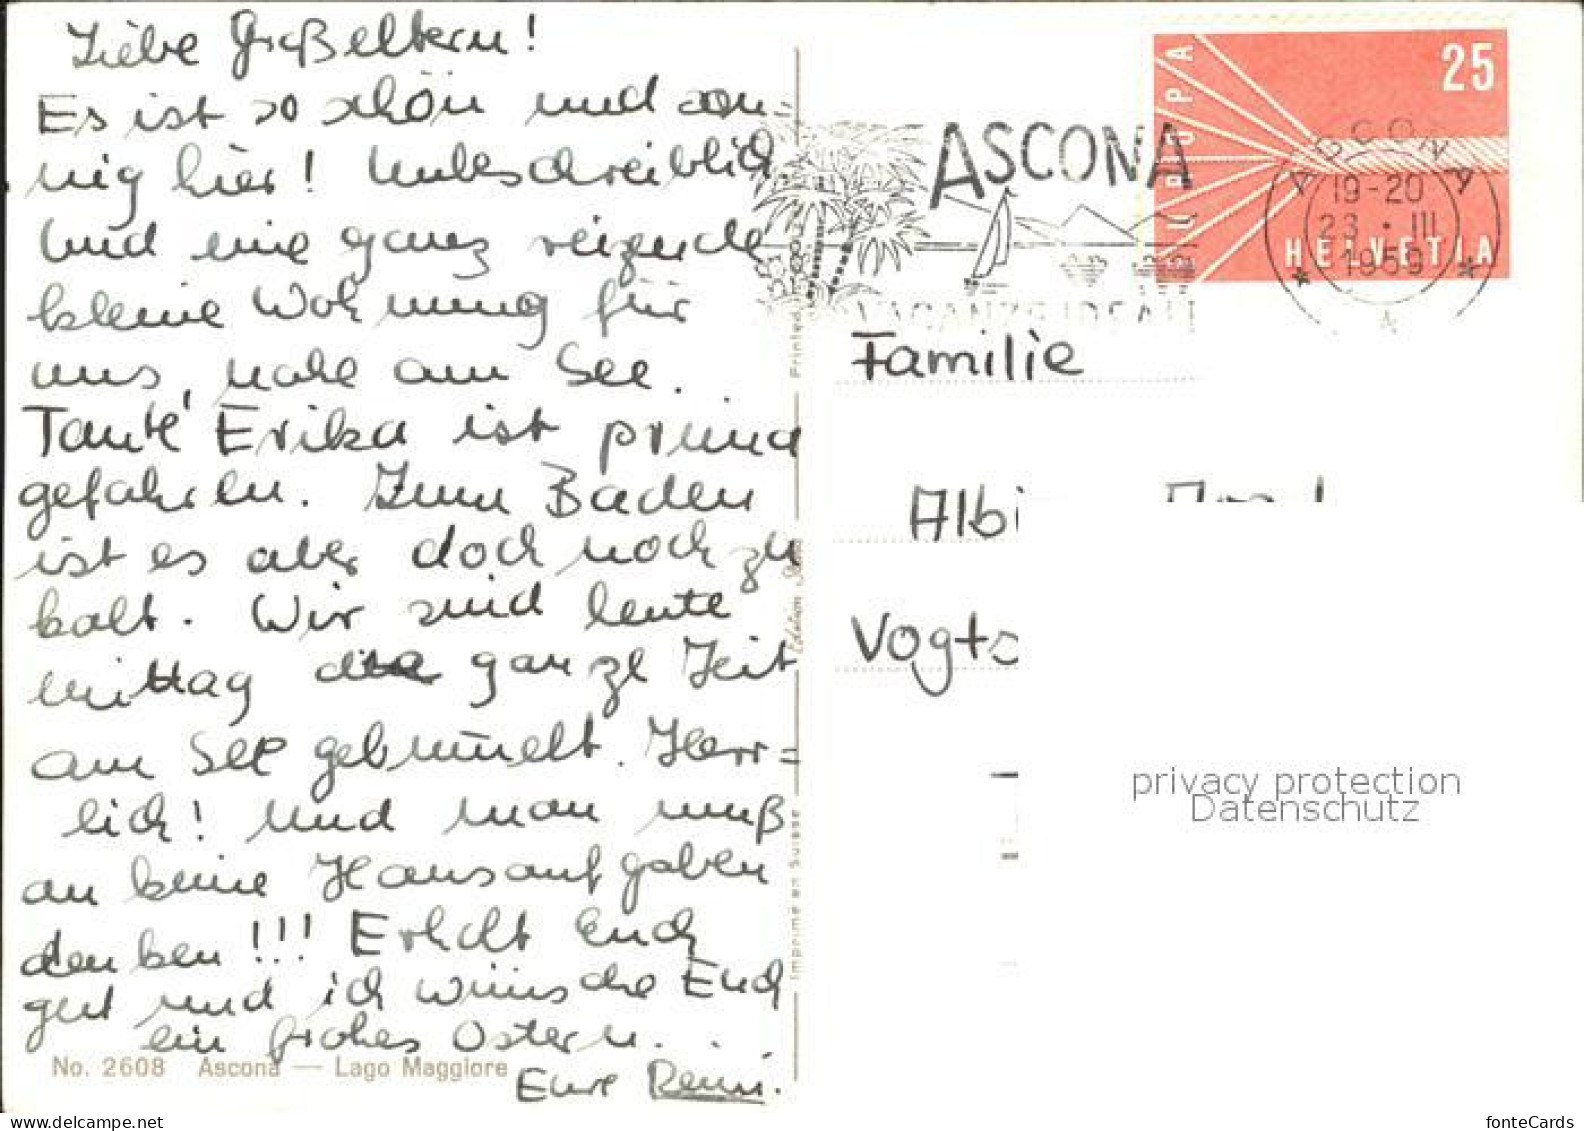 Liebe Großeltern!
Es ist so schön und son-
nig hier! Unbeschreiblich
und eine ganz reizende
kleine Wohnung für
uns, nahe am See.
Tante Erika ist prima
gefahren. Zum Baden
ist es aber doch noch zu
kalt. Wir sind heute
mittag die ganze Zeit
am See gebummelt. Herr=
lich! Und man muß
an keine Hausaufgaben
denken!!! Erholt Euch
gut und ich wünsche Euch
ein frohes Ostern.
Eure Renni.
No. 2608 Ascona — Lago Maggiore
Printed
Edition
Imprimé en Suisse
ASCONA
VACANZE IDEALI
EUROPA
25
HELVETIA
ASCONA
19-20
23 · III
1959
Familie
Albi
Vogts
privacy protection
Datenschutz
fonteCards